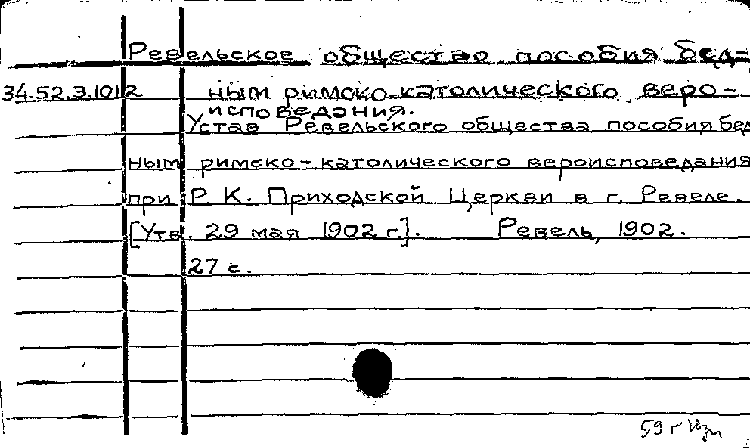 Ревельское общество пособия бед-
34.52.3.1012 ным римско-католического веро-
исповедания.
Устав Ревельского общества пособия бед
ным римско-католического вероисповедания
при Р. К. Приходской Церкви в г. Ревеле.
[Утв. 29 мая 1902 г]. Ревель, 1902.
27 с.
59 г